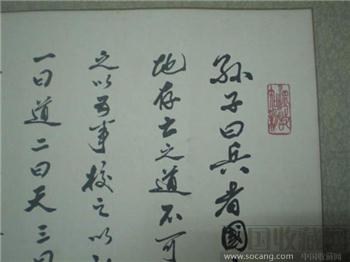 孙子曰兵者國
地存亡之道不可
之以五事校之以
一曰道二曰天三曰
中国收藏网
www.socang.com 中国收藏网